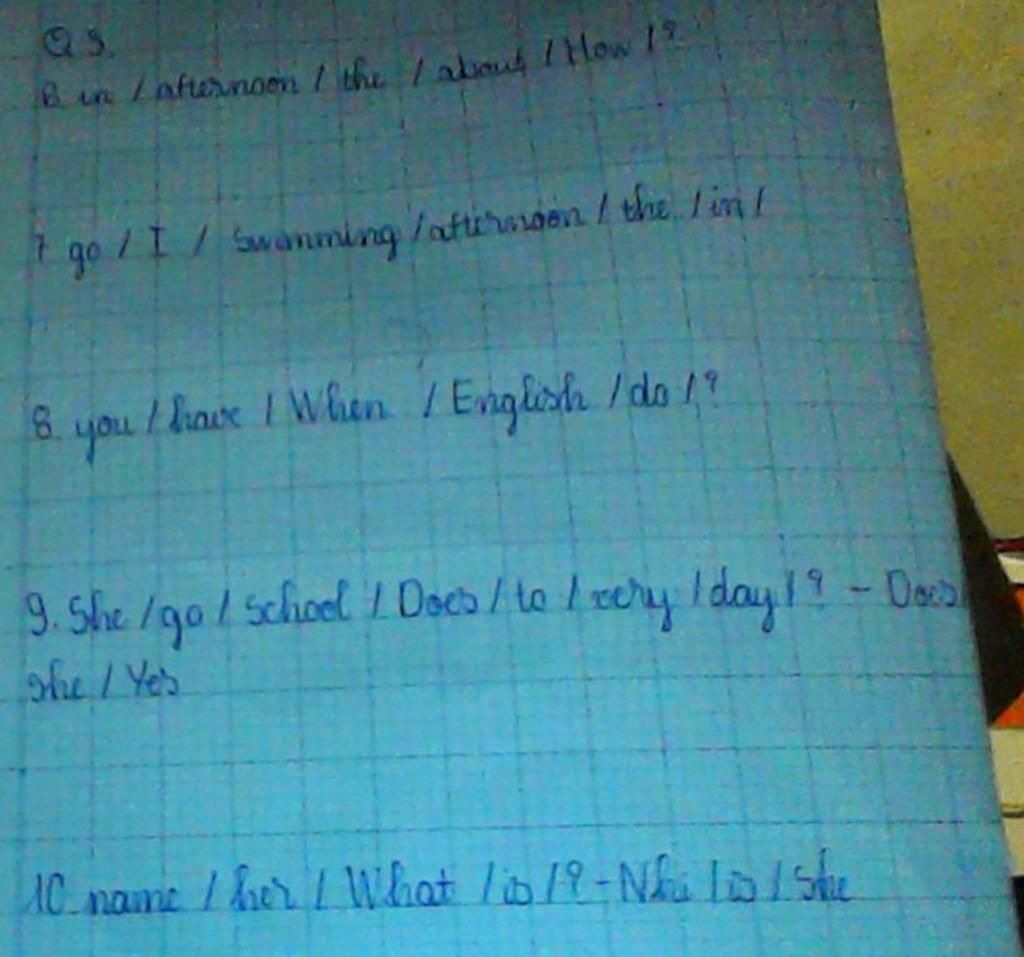 Q 3.
6. in / afternoon / the / about / How / ?
7 go / I / Swimming / afternoon / the / in /
8. you / have / When / English / do / ?
9. She / go / School / Does / to / every / day / ? - Does
she / Yes
10. name / her / What / is / ? - Nhi / is / She